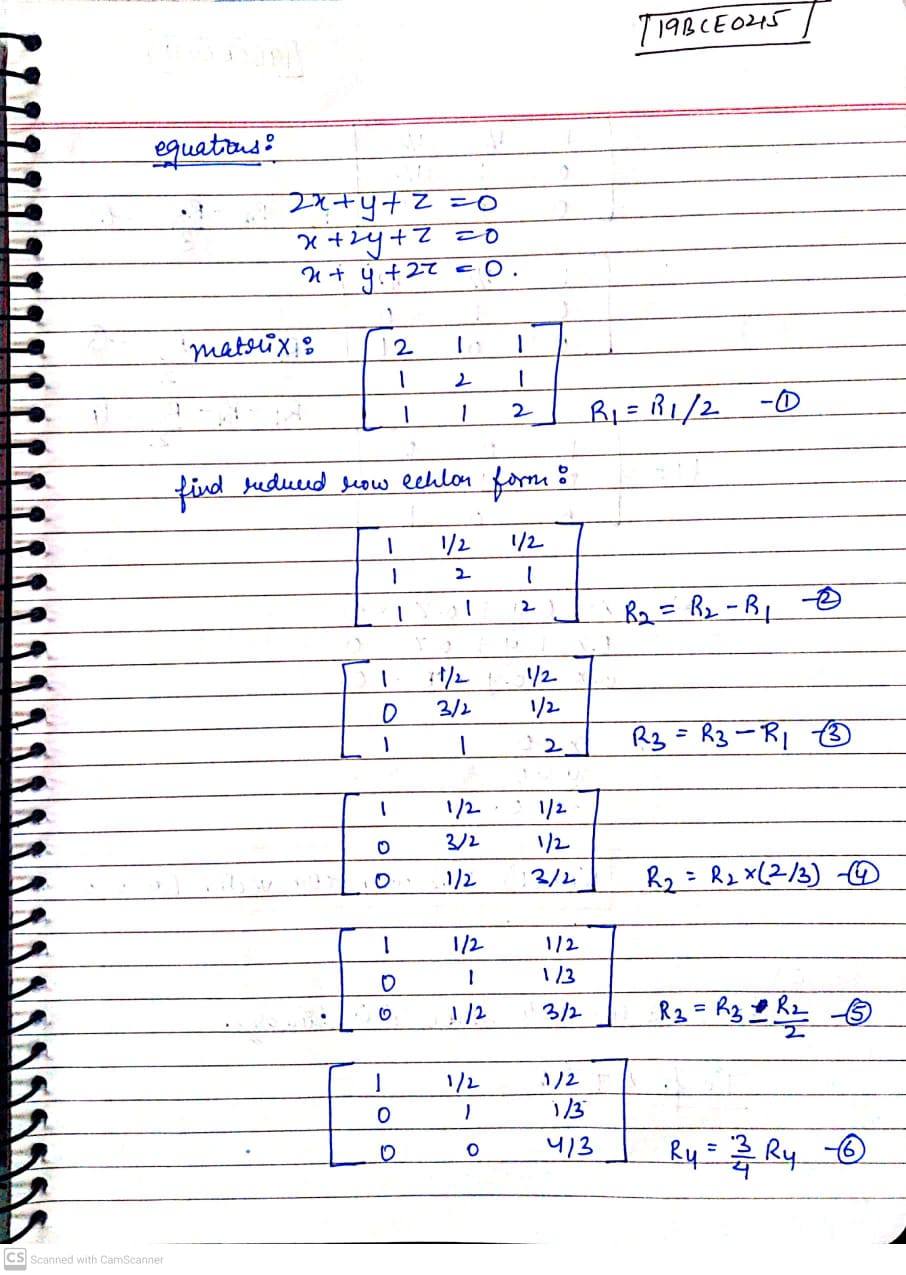 19BCE0215
equations:
2x+y+z=0
x+2y+z=0
x+y+2z=0.
matrix:
2 1 1
1 2 1
1 1 2 R1=R1/2 -①
find reduced row echlon form:
1 1/2 1/2
1 2 1
1 1 2 R2=R2-R1 -②
1 1/2 1/2
0 3/2 1/2
1 1 2 R3=R3-R1 -③
1 1/2 1/2
0 3/2 1/2
0 1/2 3/2 R2=R2x(2/3) -④
1 1/2 1/2
0 1 1/3
0 1/2 3/2 R3=R3-R2/2 -⑤
1 1/2 1/2
0 1 1/3
0 0 4/3 R4=3/4 R4 -⑥
CS Scanned with CamScanner